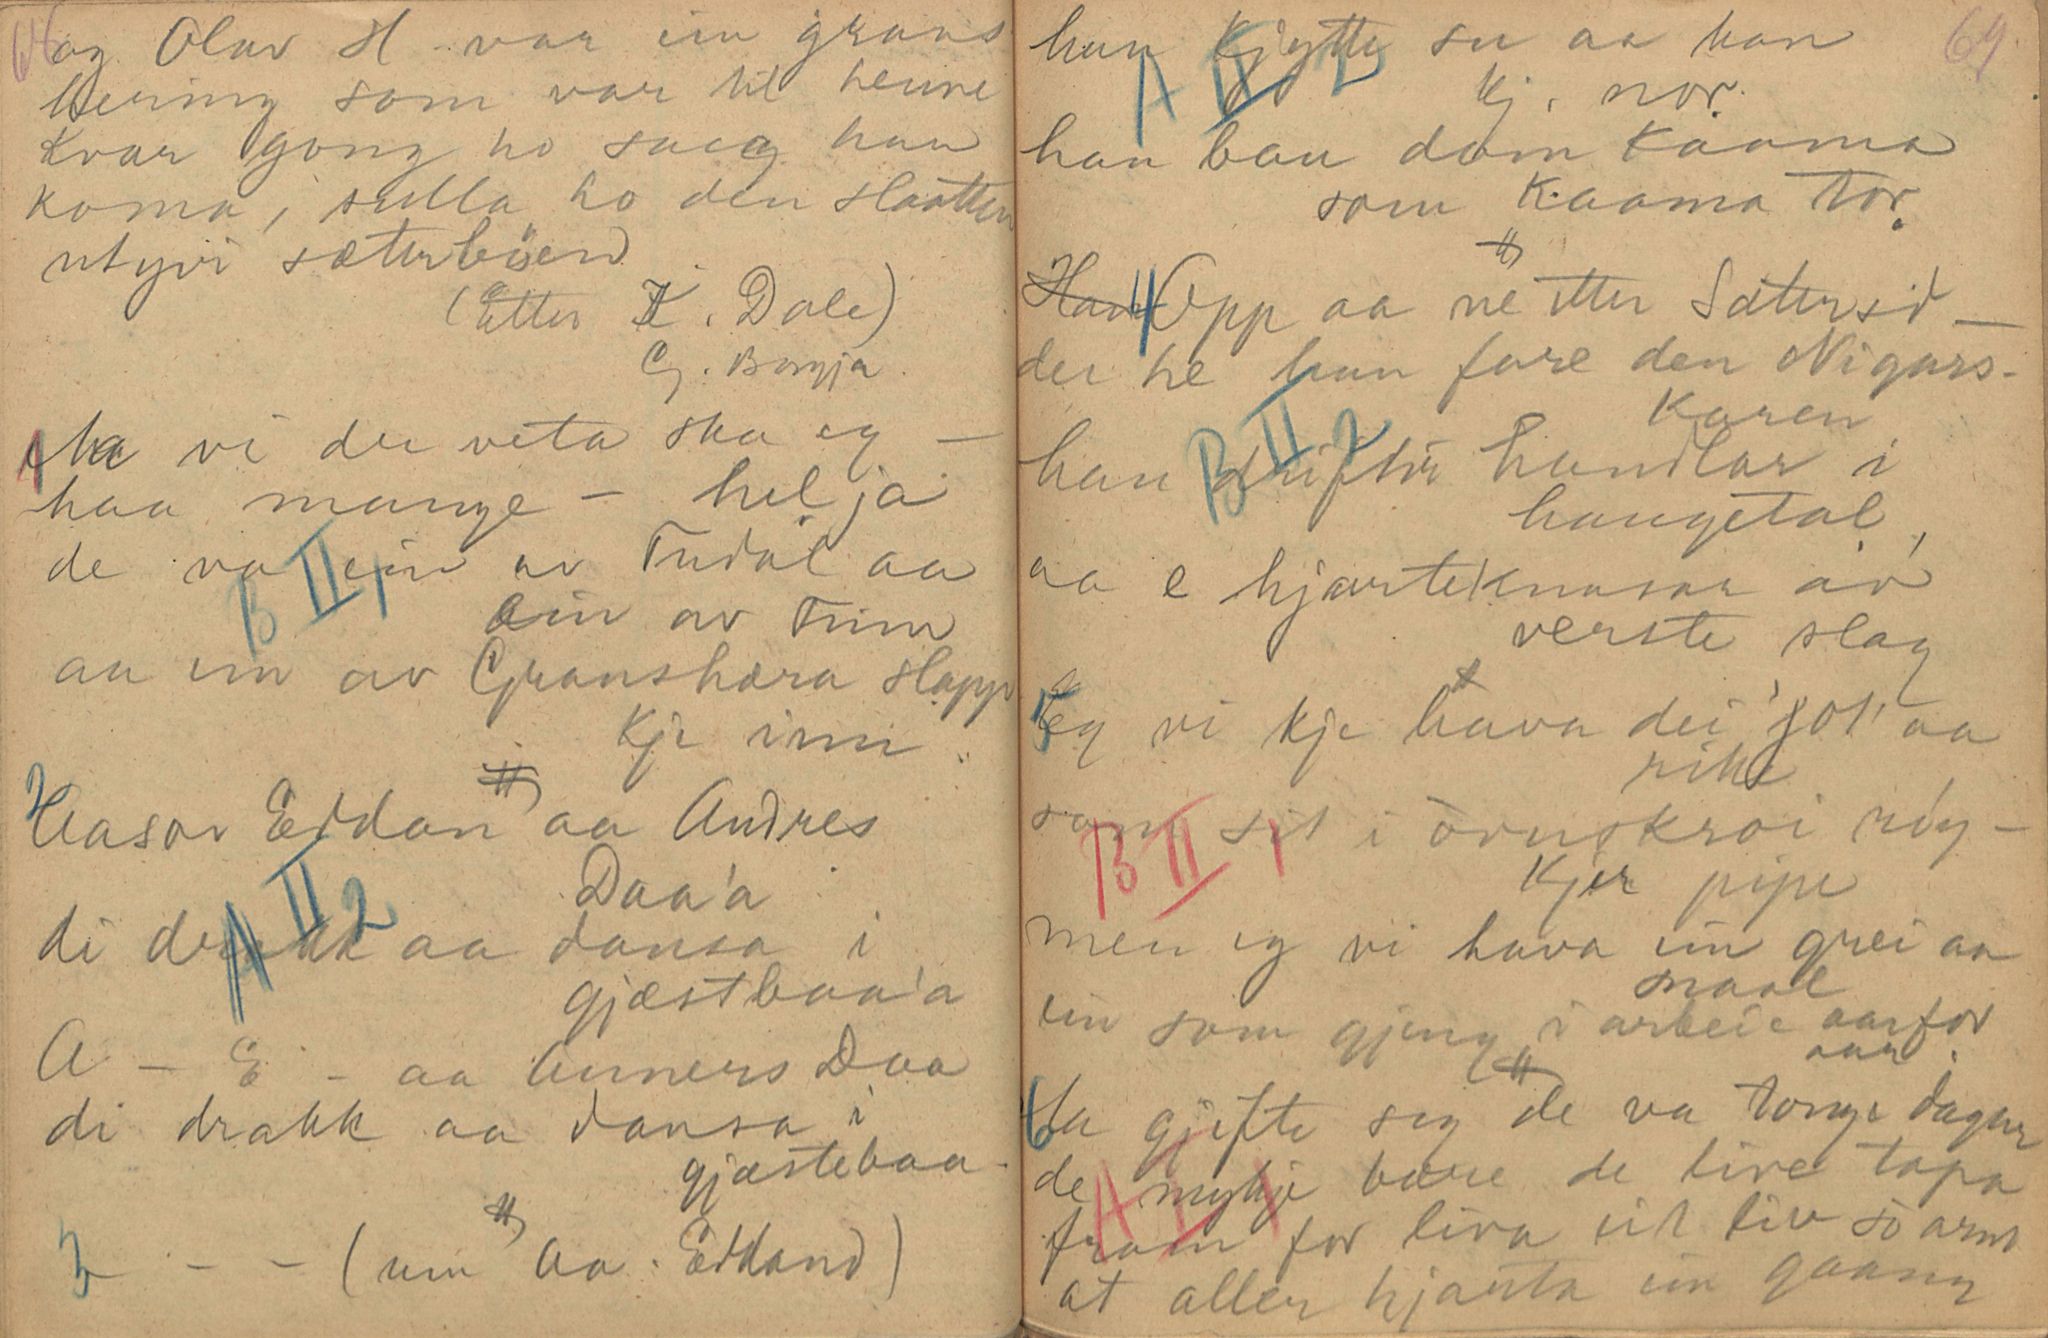 66
og Olav H var ein grans
hering som var til henne
kvar gong ho saag han
koma, sulla ho den slaatten
utyvi sæterböen
(Etter K. Dale)
G. Borgja
1 Ha vi dei veta ska eg –
haa mange – helja
de va ein av Tudal aa
ein av Tinn
B II 1
aa ein av Granshera slapp
kje inni
2 Aasov Eddan aa Andres
Daa'a
A II 2
di drakk aa dansa i
gjæstbaa'a
A – E – aa Anners Daa
di drakk aa dansa i
gjæstebaa
3 – – – (um Aa. Edland)
69
han kjøtte su aa han
A II 2
kj. nor.
han bau dom kaama
som kaama tor.
4 Opp aa ne etter Sætersid –
dei he han fare den Nigars-
karen
han drifter handlar i
B II 2
haugetal,
aa e hjarteknusar av
verste slag
5 Eg vi kje hava dei 'got' aa
rike
som sit i ovnskroi röy –
B II 1
kjer pipe
men eg vi hava ein grei aa
snaal
ein som gjeng i arbeie aar for
aar.
6 Aa gjefte seg de va tonge dagar
de mykje bære de live tapa
A I 1
fram for liva eit liv so armt
at aller hjarta ein gaang